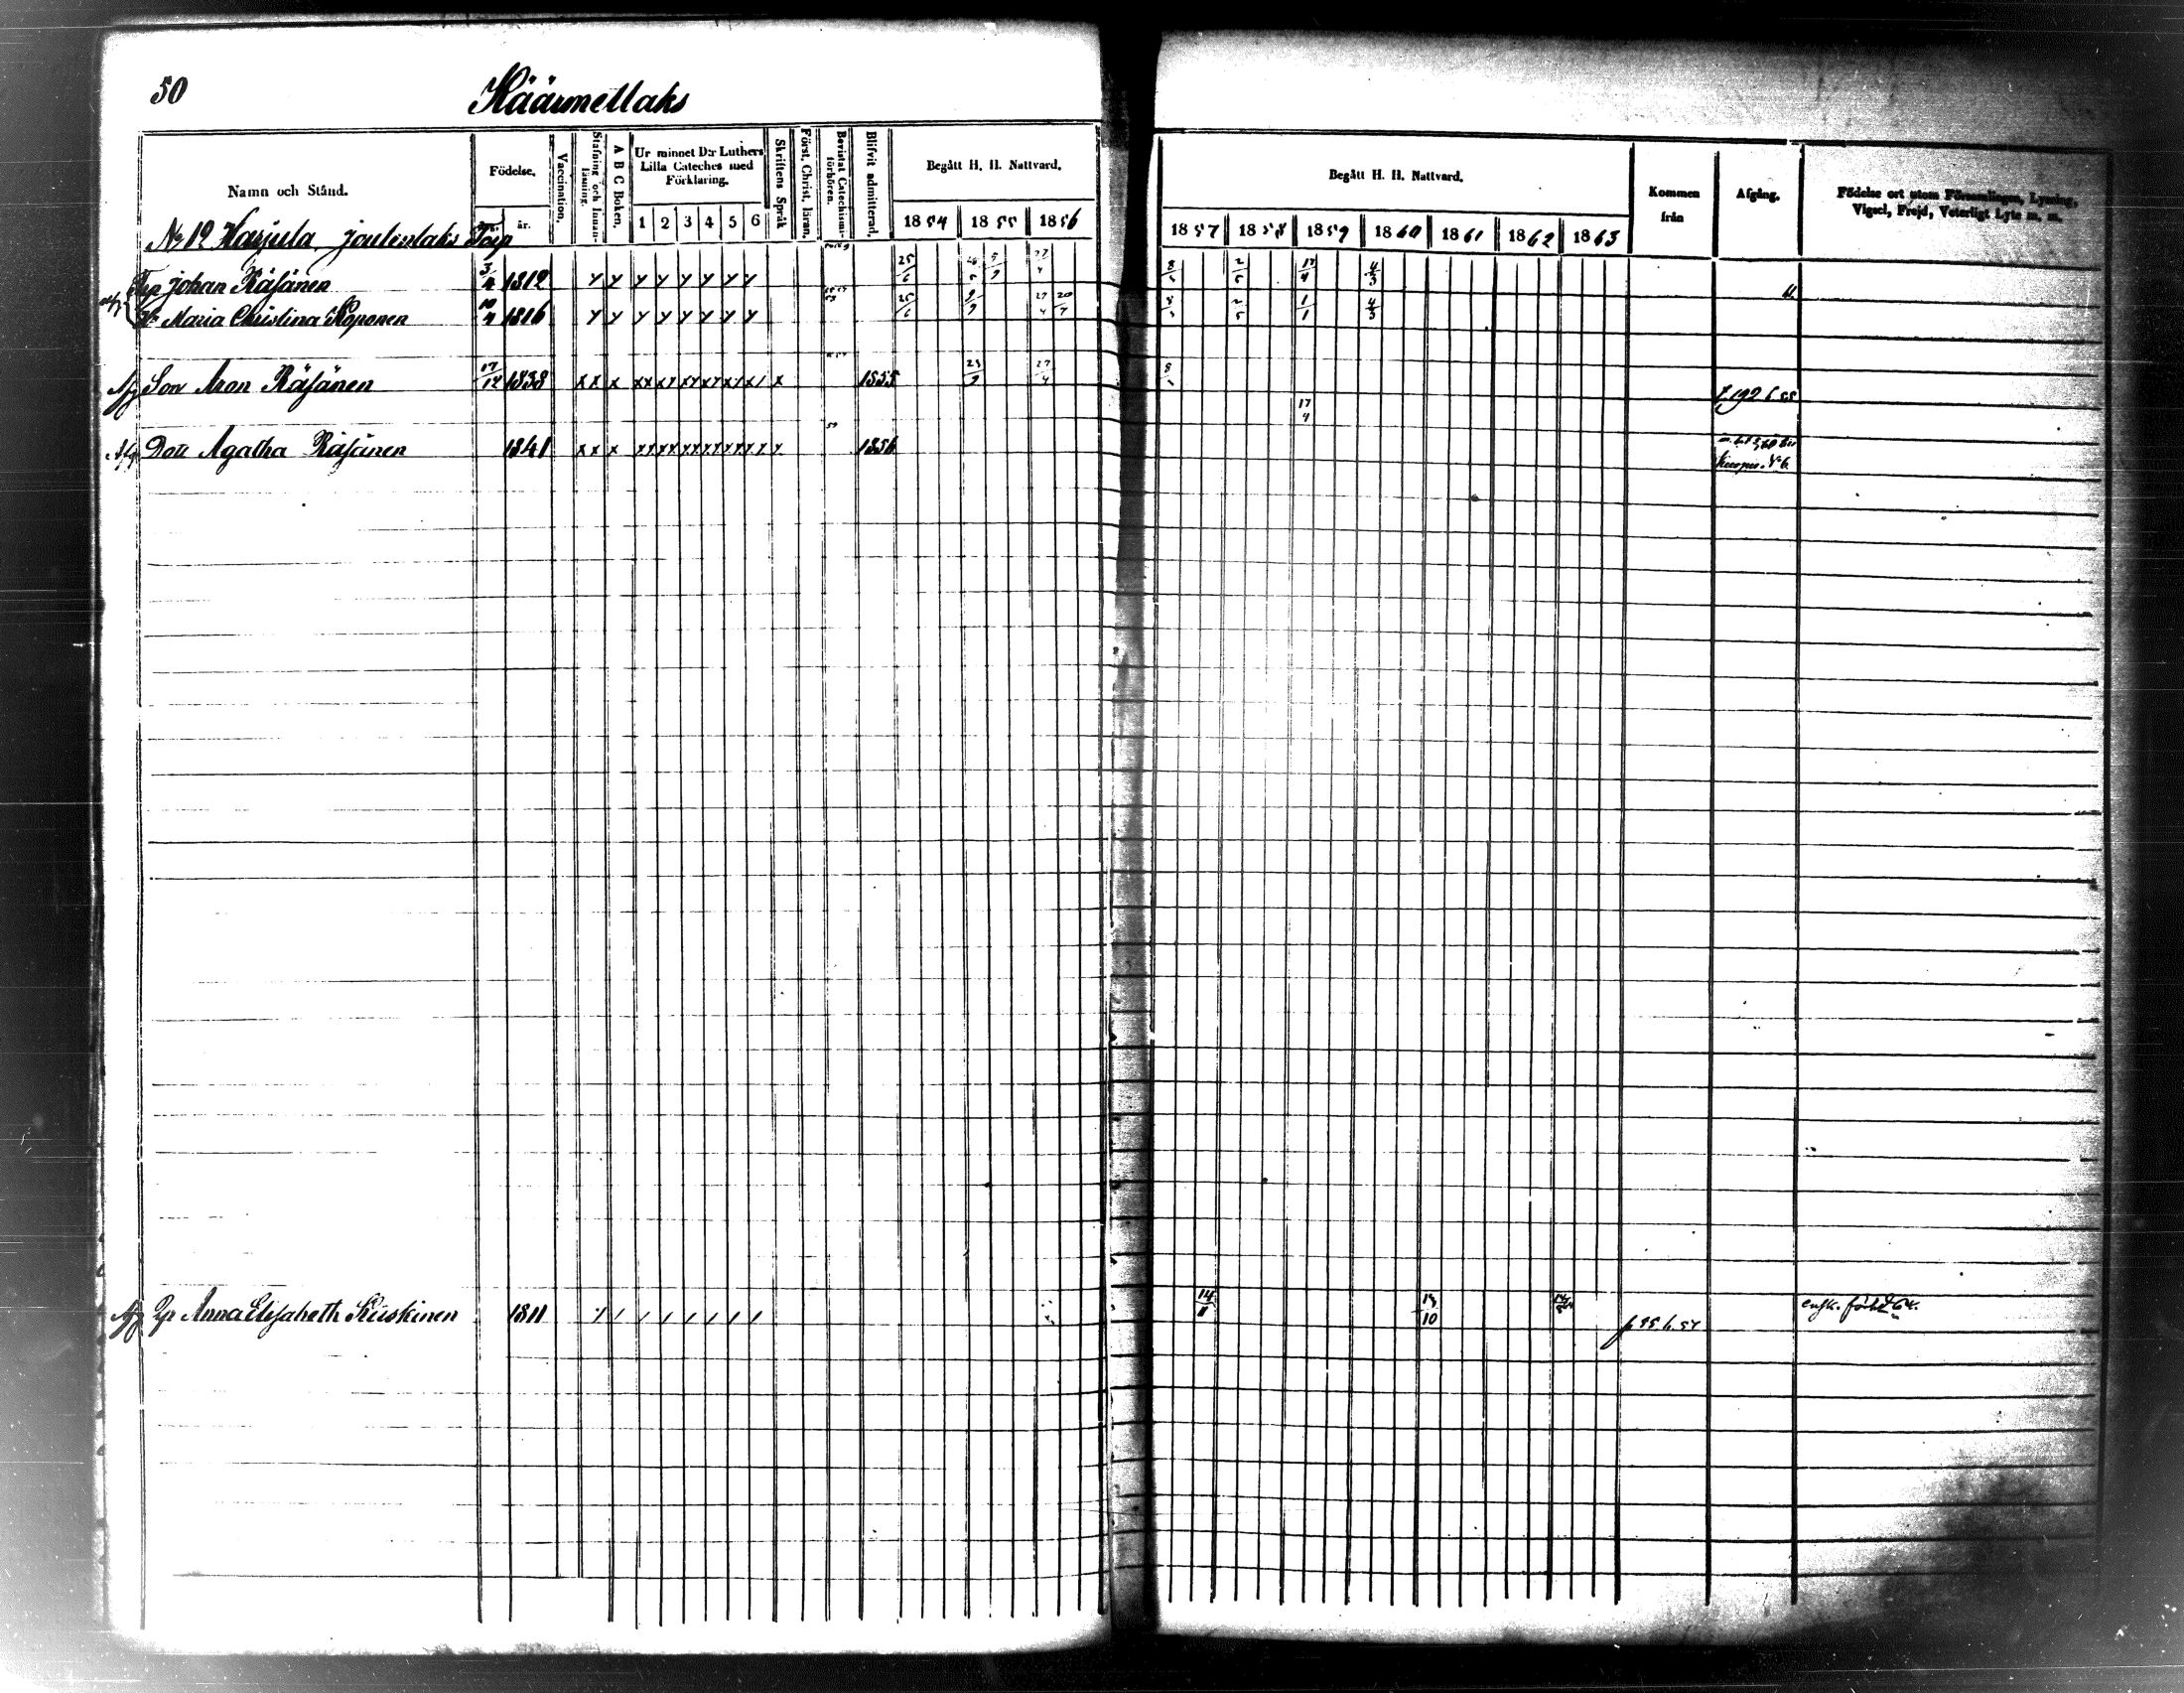 50
Häärmetlaks
Namn och Stånd.
Födelse.
år.
Vaccination.
Stafning och Innan-
läsning.
A B C Boken.
Ur minnet D:r Luthers
Lilla Cateches med
Förklaring.
1 2 3 4 5 6
Skriftens Språk
Först. Christ. läran.
Bevistat Catechismi-
förhören.
Blifvit admitterad.
Begått H. H. Nattvard.
1854 1855 1856
Begått H. H. Nattvard.
1857 1858 1859 1860 1861 1862 1863
Kommen
från
Afgång.
Födelse ort utom Församlingen, Lysning,
Vigsel, Frejd, Veterligt Lyte m. m.
No 12 Harjula Joutenlaks Torp
Tp Johan Räsänen 3/4 1812 25/6 27/4 8 2/5 17/4 4/3
H Maria Christina Koponen 10/4 1816 25/6 9/9 27/4 20/7 8 2/5 1/1 4/3
Afg Son Aron Räsänen 17/12 1838 1855 23/9 27/4 8
17/4
Afg Dott Agatha Räsänen 1841 1856
Afg Anna Elisabeth Kuskinen 1811 14/11 13/10